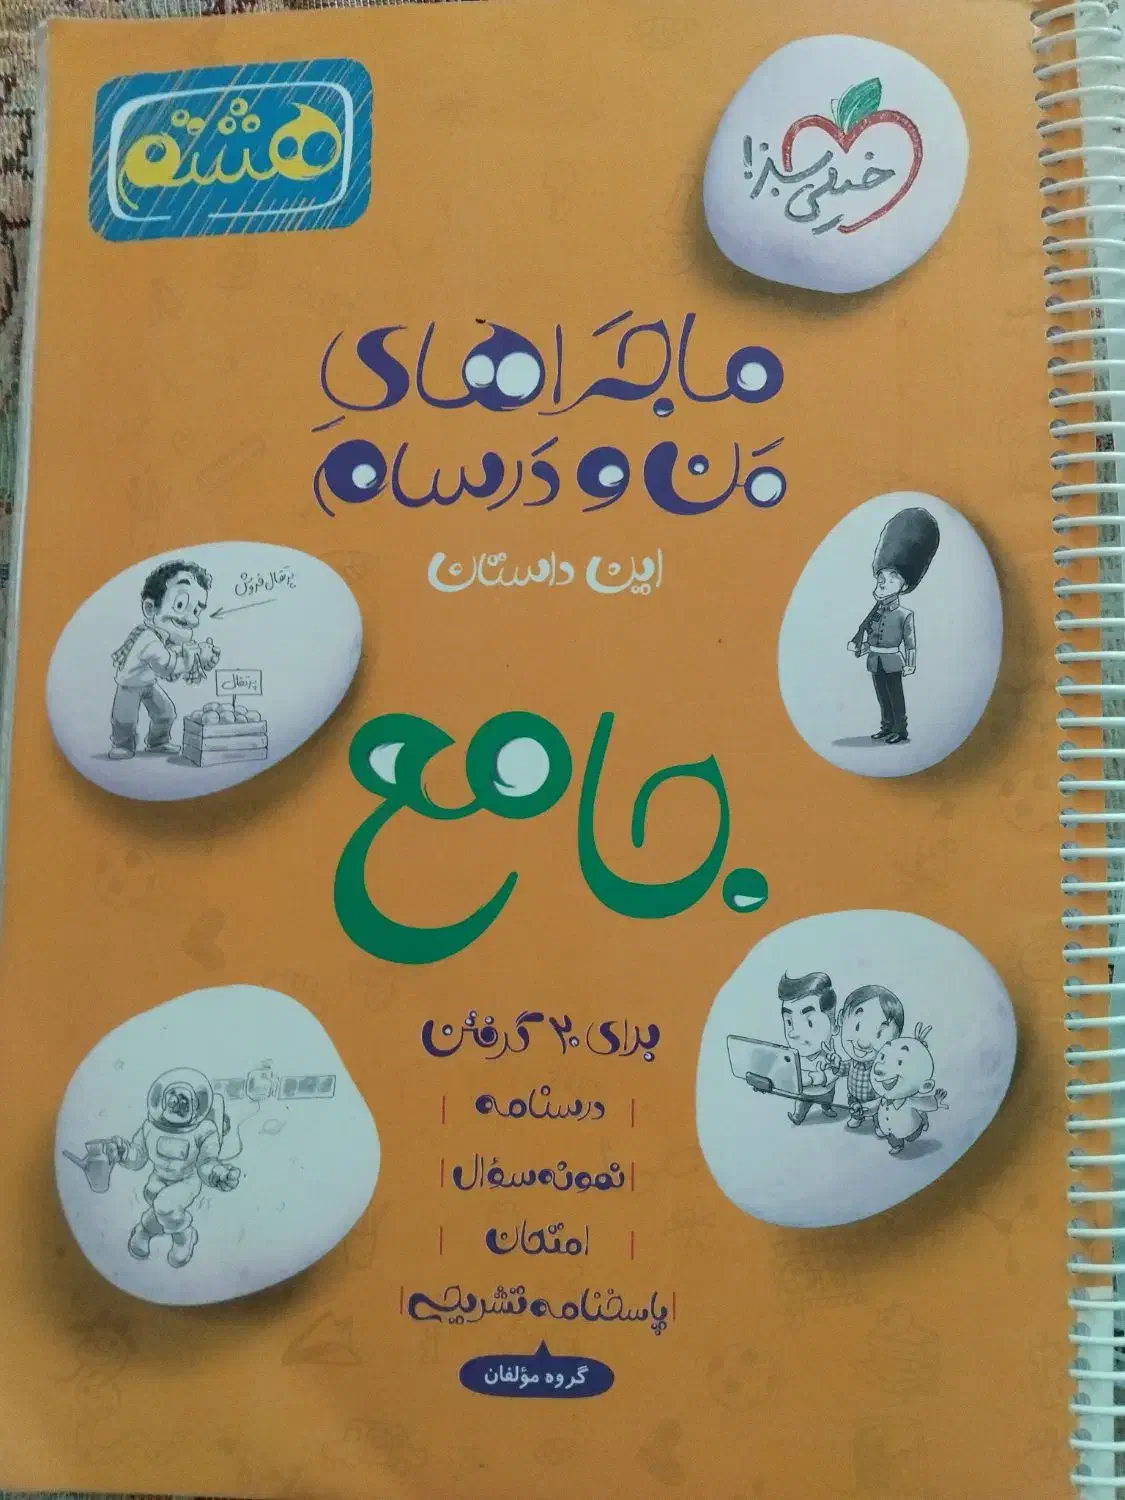 هشتم
خیلی سبز!
ماجراهای
من و درسام
این داستان
پرتقال فروش
پرتقال
جامع
برای ۲۰ گرفتن
| درسنامه |
| نمونه سؤال |
| امتحان |
| پاسخنامه تشریحی |
گروه مؤلفان